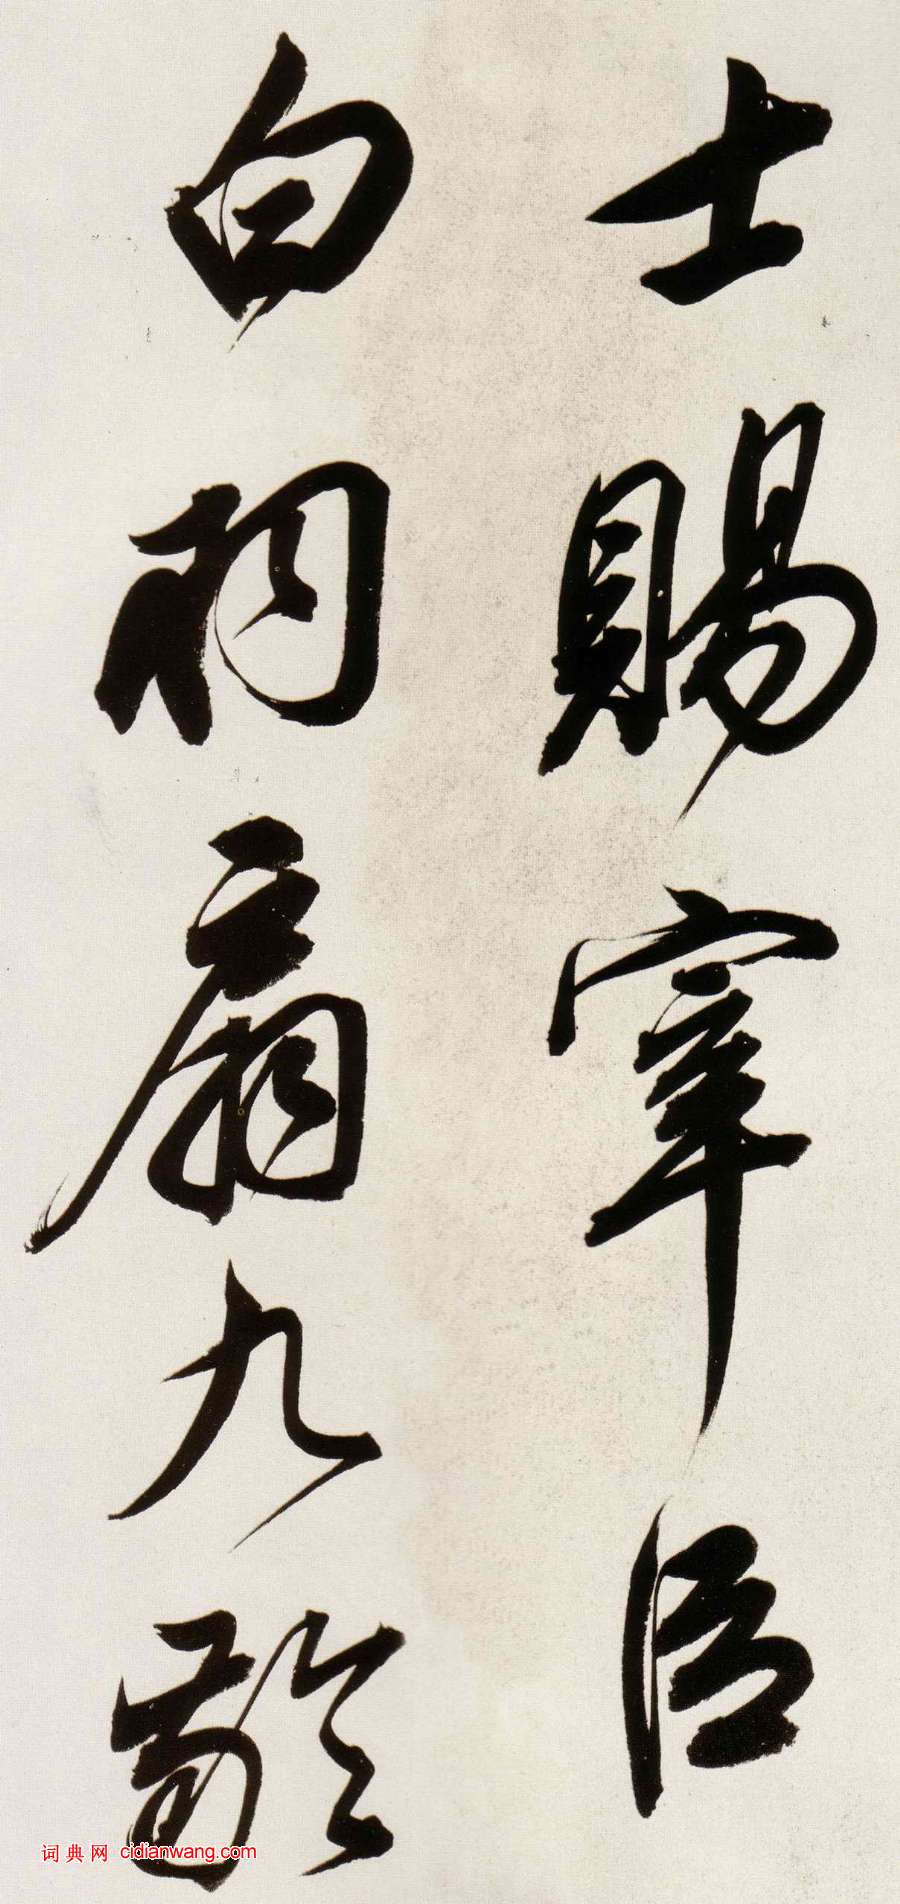 士賜宰臣
白羽扇九齡
词典网 cidianwang.com